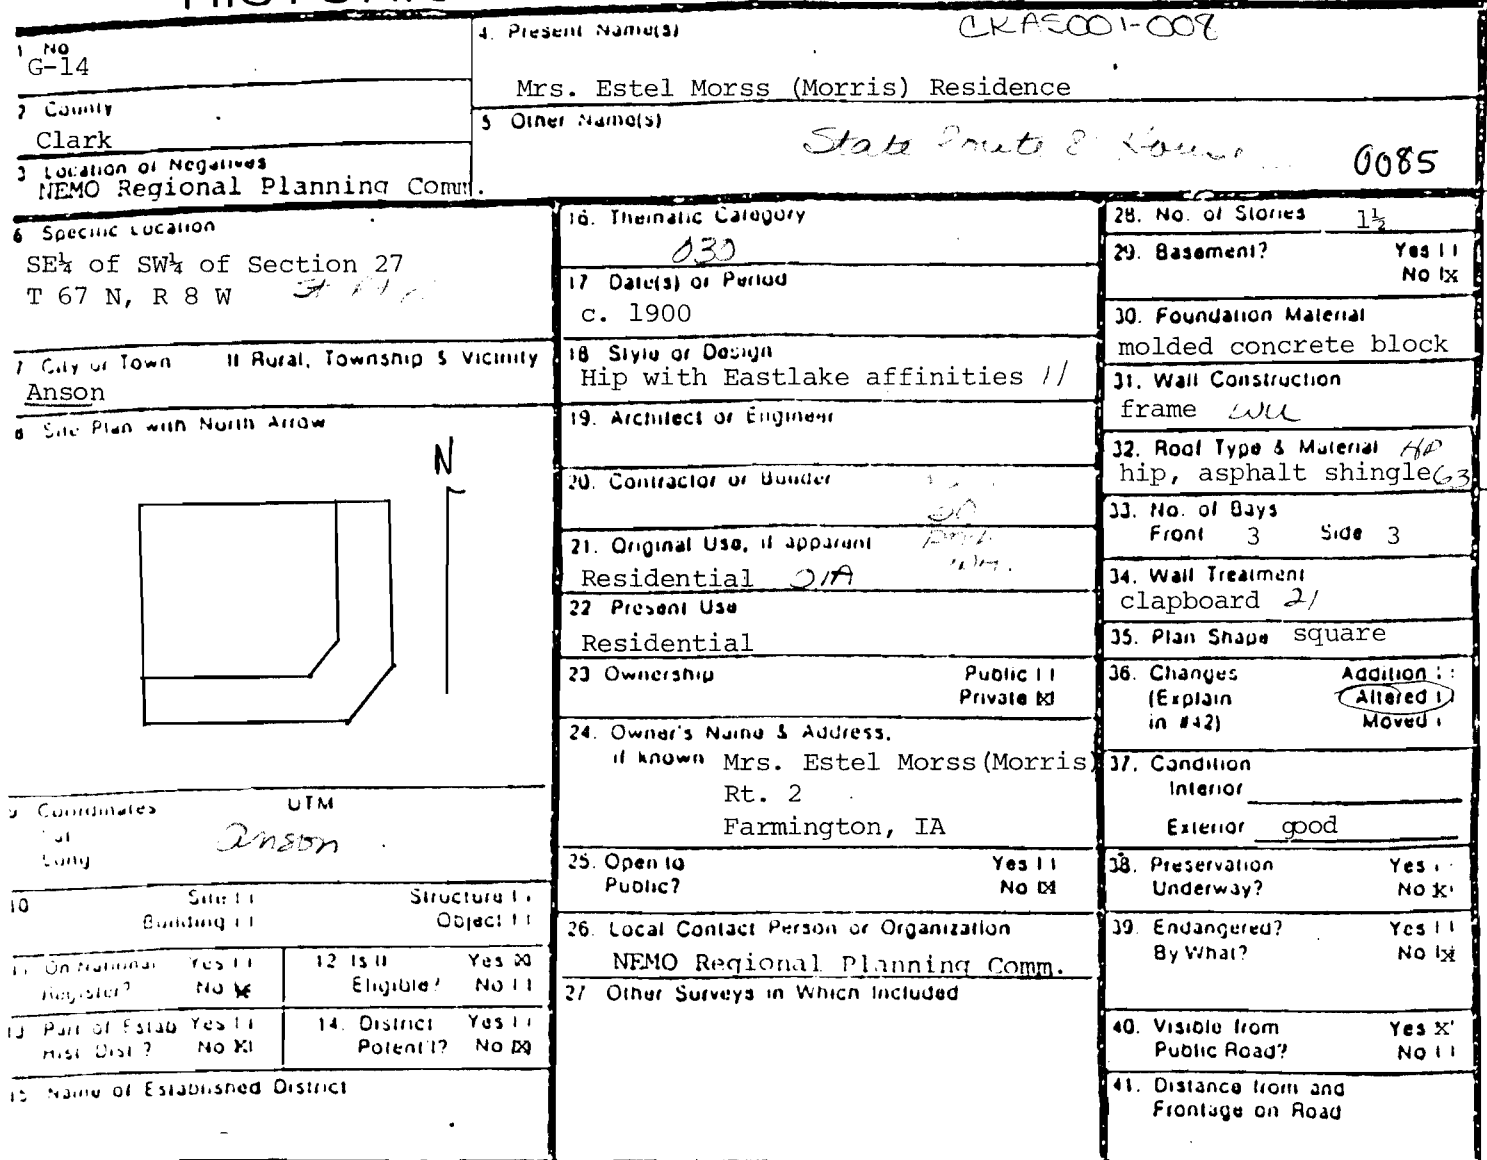 1 No
G-14
2 County
Clark
3 Location of Negatives
NEMO Regional Planning Comm.
4. Present Name(s)
CKAS001-008
Mrs. Estel Morss (Morris) Residence
5 Other Name(s)
State Route
0085
6 Specific Location
SE¼ of SW¼ of Section 27
T 67 N, R 8 W
7 City or Town If Rural, Township & Vicinity
Anson
8 Site Plan with North Arrow
N
9 Coordinates UTM
Lat
Long
Anson
10 Site [ ] Structure [ ]
Building [ ] Object [ ]
11 On National Register? Yes [ ] No [X]
12 Is it Eligible? Yes [X] No [ ]
13 Part of Estab Hist. Dist.? Yes [ ] No [X]
14. District Potent'l? Yes [ ] No [X]
15 Name of Established District
16. Thematic Category
030
17 Date(s) or Period
c. 1900
18 Style or Design
Hip with Eastlake affinities 11
19. Architect or Engineer
20. Contractor or Builder
21. Original Use, if apparent
Residential 01A
22 Present Use
Residential
23 Ownership Public [ ]
Private [X]
24. Owner's Name & Address,
if known Mrs. Estel Morss(Morris)
Rt. 2
Farmington, IA
25. Open to Yes [ ]
Public? No [X]
26. Local Contact Person or Organization
NEMO Regional Planning Comm.
27 Other Surveys in Which Included
28. No. of Stories 1½
29. Basement? Yes [ ]
No [X]
30. Foundation Material
molded concrete block
31. Wall Construction
frame WU
32. Roof Type & Material HP
hip, asphalt shingle 63
33. No. of Bays
Front 3 Side 3
34. Wall Treatment
clapboard 21
35. Plan Shape square
36. Changes Addition [ ]
(Explain Altered [ ]
in #42) Moved [ ]
37. Condition
Interior
Exterior good
38. Preservation Yes [ ]
Underway? No [X]
39. Endangered? Yes [ ]
By What? No [X]
40. Visible from Yes [X]
Public Road? No [ ]
41. Distance from and
Frontage on Road